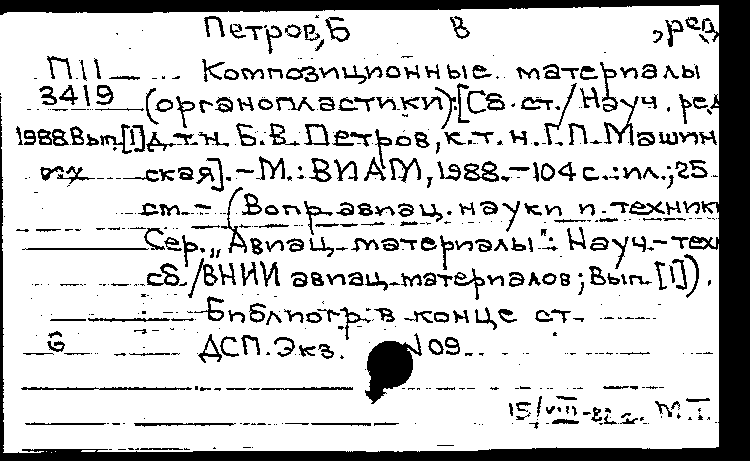 Петров, Б В , ред
П II Композиционные материалы
3419 (органопластики): [Сб. ст. / Науч. ред
1988 Вып. [I] д.т.н. Б.В. Петров, к.т.н. Г.П. Машин
ская]. - М.: ВИАМ, 1988. - 104 с.: ил.; 25
см. - (Вопр. авиац. науки и техники
Сер. „Авиац. материалы": Науч.-техн
сб. / ВНИИ авиац. материалов; Вып. [I]).
Библиогр. в конце ст.
б ДСП. Экз. N 09.
15/VIII- г. М.Т.